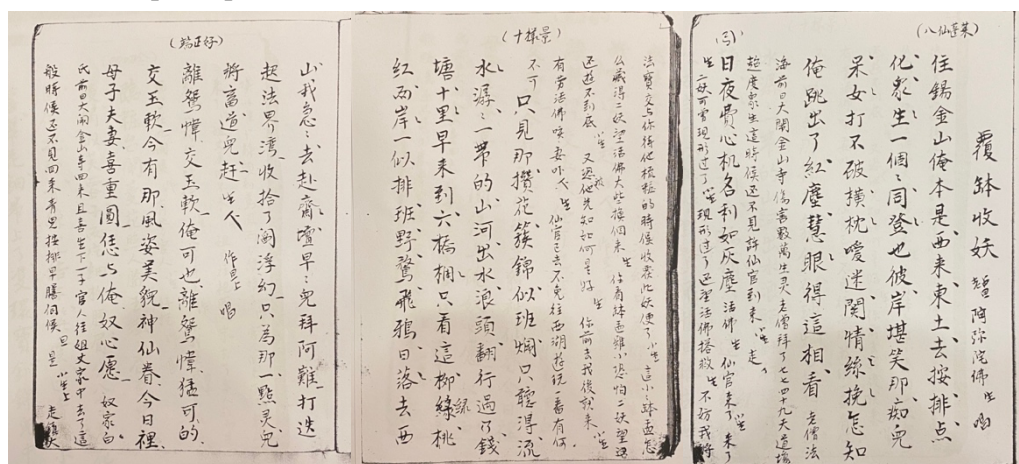 (八仙香菜)
覆缽收妖 豎 阿弥陀佛 生 唱
住錫金山俺本是西来東土去按排点
化衆生一個〻同登也彼岸堪笑那痴兒
呆女打不破橫枕噯迷関情絲挽怎知
俺跳出了紅塵慧眼得這相看 老僧法
海前日大鬧金山寺傷害數萬生灵老僧拜了七七四十九天道壇
超度衆生這時候还不見許仙官到来 生 走
日夜費心机名利如灰塵活佛 生 仙官来了 生 来了
生 二妖可曾現形过了 生 現形过了还望活佛搭救 生 不妨我将
(十樣景)
法寶交与你待他梳粧的時候收衆此妖便了 生 這小〻缽盂怎
仏藏得二妖望活佛大些換個来 生 你看缽盂雖小恐怕二妖望還
还遊不到底 生 又恐他先知如何是好 生 你前去我後就来 生
有劳活佛喚妻卟 生 仙官已去不免往西湖遊玩一番有何
不可 只見那攢花簇錦似班斕只聽得流
水潺〻一帶的山河出水浪頭翻行过了錢
塘十里早来到六橋梱只看這柳綠桃
紅兩岸一似排班野鶩飛鴉日落去西
(端正好)
山我急〻去赴齋壇早〻兒拜阿難打迭
起法界湾收拾了阎浮幻只為那一點灵兒
將富道兒赶 生 作員上 唱
離鴛幃交玉軟俺可也離鴛幃猛可的
交玉軟今有那風姿美貌神仙眷今日裡
母子夫妻喜重圓恁与俺奴心愿 奴家白
氏前日大鬧金山寺回来且喜生下一子官人往姐丈家中去了這
般時候还不見回来青兒 按排早膳伺候 旦 是 小生上 走